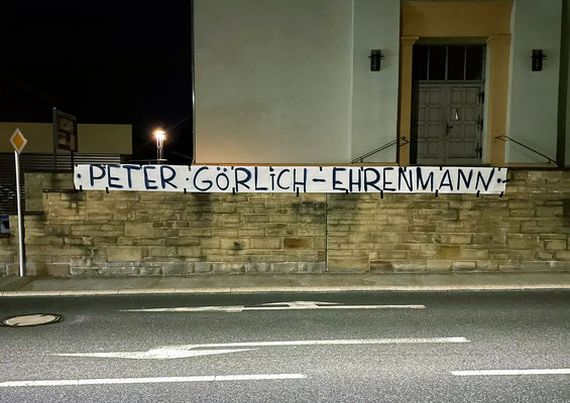 PETER GÖRLiCH - EHRENMANN